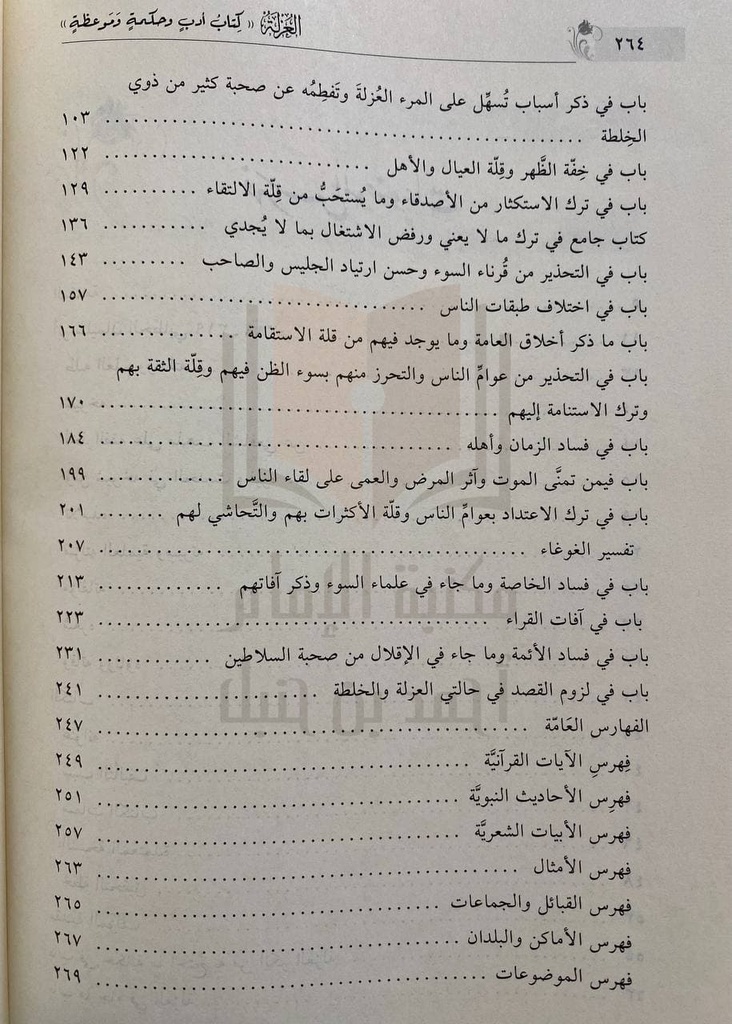 ٢٦٤
العزلة « كتاب أدب وحكمة وموعظة »
باب في ذكر أسباب تُسهِّل على المرء العُزلةَ وتَفطِمُه عن صحبة كثير من ذوي
الخِلطة ........ ١٠٣
باب في خِفّة الظَّهر وقِلّة العيال والأهل ........ ١٢٢
باب في ترك الاستكثار من الأصدقاء وما يُستحَبُّ من قِلّة الالتقاء ........ ١٢٩
كتاب جامع في ترك ما لا يعني ورفض الاشتغال بما لا يُجدي ........ ١٣٦
باب في التحذير من قُرناء السوء وحسن ارتياد الجليس والصاحب ........ ١٤٣
باب في اختلاف طبقات الناس ........ ١٥٧
باب ما ذكر أخلاق العامة وما يوجد فيهم من قلة الاستقامة ........ ١٦٦
باب في التحذير من عوامِّ الناس والتحرز منهم بسوء الظن فيهم وقِلّة الثقة بهم
وترك الاستنامة إليهم ........ ١٧٠
باب في فساد الزمان وأهله ........ ١٨٤
باب فيمن تمنَّى الموت وآثر المرض والعمى على لقاء الناس ........ ١٩٩
باب في ترك الاعتداد بعوامِّ الناس وقلّة الأكثرات بهم والتَّحاشي لهم ........ ٢٠١
تفسير الغوغاء ........ ٢٠٧
باب في فساد الخاصة وما جاء في علماء السوء وذكر آفاتهم ........ ٢١٣
باب في آفات القراء ........ ٢٢٣
باب في فساد الأئمة وما جاء في الإقلال من صحبة السلاطين ........ ٢٣١
باب في لزوم القصد في حالتي العزلة والخلطة ........ ٢٤١
الفهارس العَامّة ........ ٢٤٧
فِهرسِ الآيات القرآنيَّة ........ ٢٤٩
فهرِس الأحاديث النبويَّة ........ ٢٥١
فهرس الأبيات الشعريَّة ........ ٢٥٧
فهرس الأمثال ........ ٢٦٣
فهرس القبائل والجماعات ........ ٢٦٥
فهرس الأماكن والبلدان ........ ٢٦٧
فهرس الموضوعات ........ ٢٦٩
مكتبة الإمام
أحمد بن حنبل